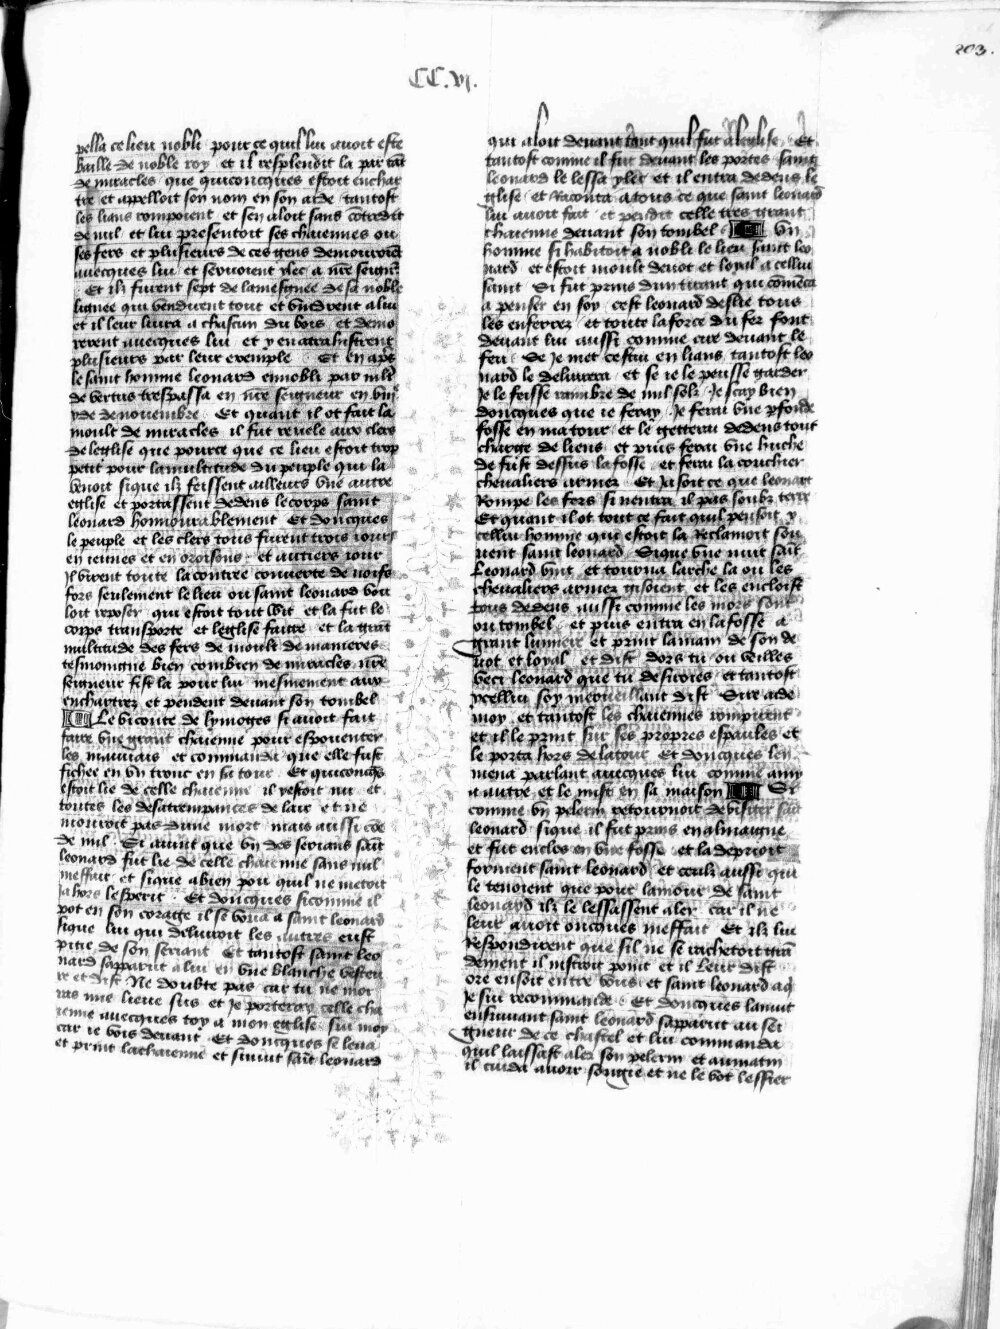 203.
CC.vi.
pella ce lieu nobli pour ce quil lui auoit este
baille de noble roy et il resplendit la par tãt
de miracles que quiconcques estoit enchar
tre et appelloit son nom en son aide tantost
les lians rompoient et sen aloit sans cõtredit
de nul et lui presentoit ses chaiennes ou
ses fers et plusieurs de ces gens demouroiẽt
auecques lui et seruoient ylec a nr̃e seignr̃
Et ilz furent sept de la mesgnee de sa noble
lignee qui vendirent tout et vindrent a lui
et il leur liura a chascun du bois et demo
rerent auecques lui et y en atrahistrent
plusieurs par leur exemple Et en apres
le saint homme leonard ennobli par
de vertus trespassa en nr̃e seigneur en viii
yde de nouembre Et quant il ot fait la
moult de miracles il fut reuele aux clers
de leglise que pource que ce lieu estoit trop
petit pour la multitude du peuple qui la
venoit sique ilz feissent ailleurs vne autre
eglise et portassent dedens le corps saint
leonard honnourablement Et doncques
le peuple et les clers tous furent trois iours
en ieunes et en oroisons et au tiers iour
Il virent toute la contree couuerte de noifs
fors seulement le lieu ou saint leonard vou
loit reposer qui estoit tout vuit et la fut le
corps transporte et leglise faitte et la grãt
multitude des fers de moult de manieres
tesmoingne bien combien de miracles nr̃e
seigneur fist la pour lui mesmement aux
enchartrez et pendent deuant son tombel
Le viconte de lymoges si auoit fait
faire vne grant chaienne pour espouenter
les mauuais et commanda que elle fust
fichee en vn tronc en sa tour Et quiconq̃s
estoit lie de celle chaienne il restoit nu et
toutes les desatrempances de lair et ne
mouroit pas dune mort mais aussi cõe
de mil Si auint que vn des serians saĩt
leonard fut lie de celle chaienne sans nul
meffait et sique a bien pou quil ne metoit
Ja hors lesperit Et doncques si comme il
pot en son corage il se voua a saint leonard
sique lui qui deliuroit les autres eust
pitie de son seriant Et tantost saint leo
nard sapparut a lui en vne blanche vesteu
re et dist Ne doubte pas car tu ne mor
ras mie lieue sus et Je porteray celle cha
ienne auecques toy a mon eglise siu moy
car ie vois deuant Et doncques se leua
et print la chaienne et siuuit saĩt leonard
qui aloit deuant tant quil fut a leglise Et
tantost comme il fut deuant les portes saint
leonard le lessa ylec et il entra dedens le
glise et raconta a tous ce que saint leonard
lui auoit fait et pendit celle tres grant
chaienne deuant son tombel Vn
homme si habitoit a nobli le lieu saint leo
nard et estoit moult deuot et loyal a cellui
saint Si fut prins dun tirant qui cõmẽca
a penser en soy cest leonard deslie tous
les enferrez et toute la force du fer font
deuant lui aussi comme cire deuant le
feu Se Je met cestui en lians tantost leo
nard le deliurera et se ie le peusse garder
Je le feisse raimbre de mil solz Je scay bien
doncques que ie feray Je feray vne pfonde
fosse en ma tour et le getteray dedens tout
charge de liens et puis feray vne huche
de fust dessus la fosse et feray la couchier
cheualiers armez Et Ja soit ce que leonart
Rompe les fers si nentra il pas soubz terre
Et quant il ot tout ce fait quil pensoit y
cellui homme qui estoit la reclamoit sou
uent saint leonard Sique vne nuit saĩt
leonard vint et tourna larche la ou les
cheualiers armez gisoient et les encloist
tous dedens aussi comme les mors sont
ou tombel et puis entra en la fosse a
grant lumiere et print la main de son de
uot et loyal et dist dors tu ou veilles
veci leonard que tu desirroies et tantost
ycellui soy merueillant dist Sire aide
moy et tantost les chaiennes rompirent
et il le print sur ses propres espaules et
le porta hors de la tour Et doncques len
mena parlant auecques lui comme amy
a autre et le mist en sa maison Si
comme vn pelerin retournoit de visiter saĩt
leonard sique il fut prins en almaigne
et fut enclos en vne fosse et la deprioit
forment saint leonard et ceulz aussi qui
le tenoient que pour lamour de saint
leonard ilz le lessassent aler car il ne
leur auoit oncques meffait Et ilz lui
Respondirent que sil ne se rachetoit grã
dement il nistroit point et il leur dist
ore en soit entre vous et saint leonard a q̃
Je sui recommande Et doncques la nuit
ensuiuant saint leonard sapparut au sei
gneur de ce chastel et lui commanda
quil laissast aler son pelerin et au matin
il cuida auoir songie et ne le vot lessier